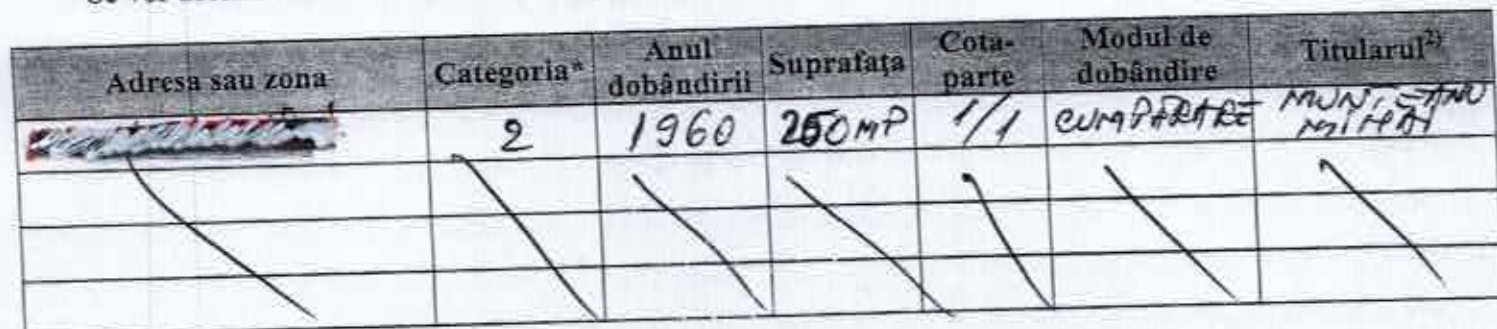 Adresa sau zona Categoria* Anul dobândirii Suprafața Cota-parte Modul de dobândire Titularul²⁾
2 1960 250 MP 1/1 CUMPĂRARE MUNTEANU MIHAI